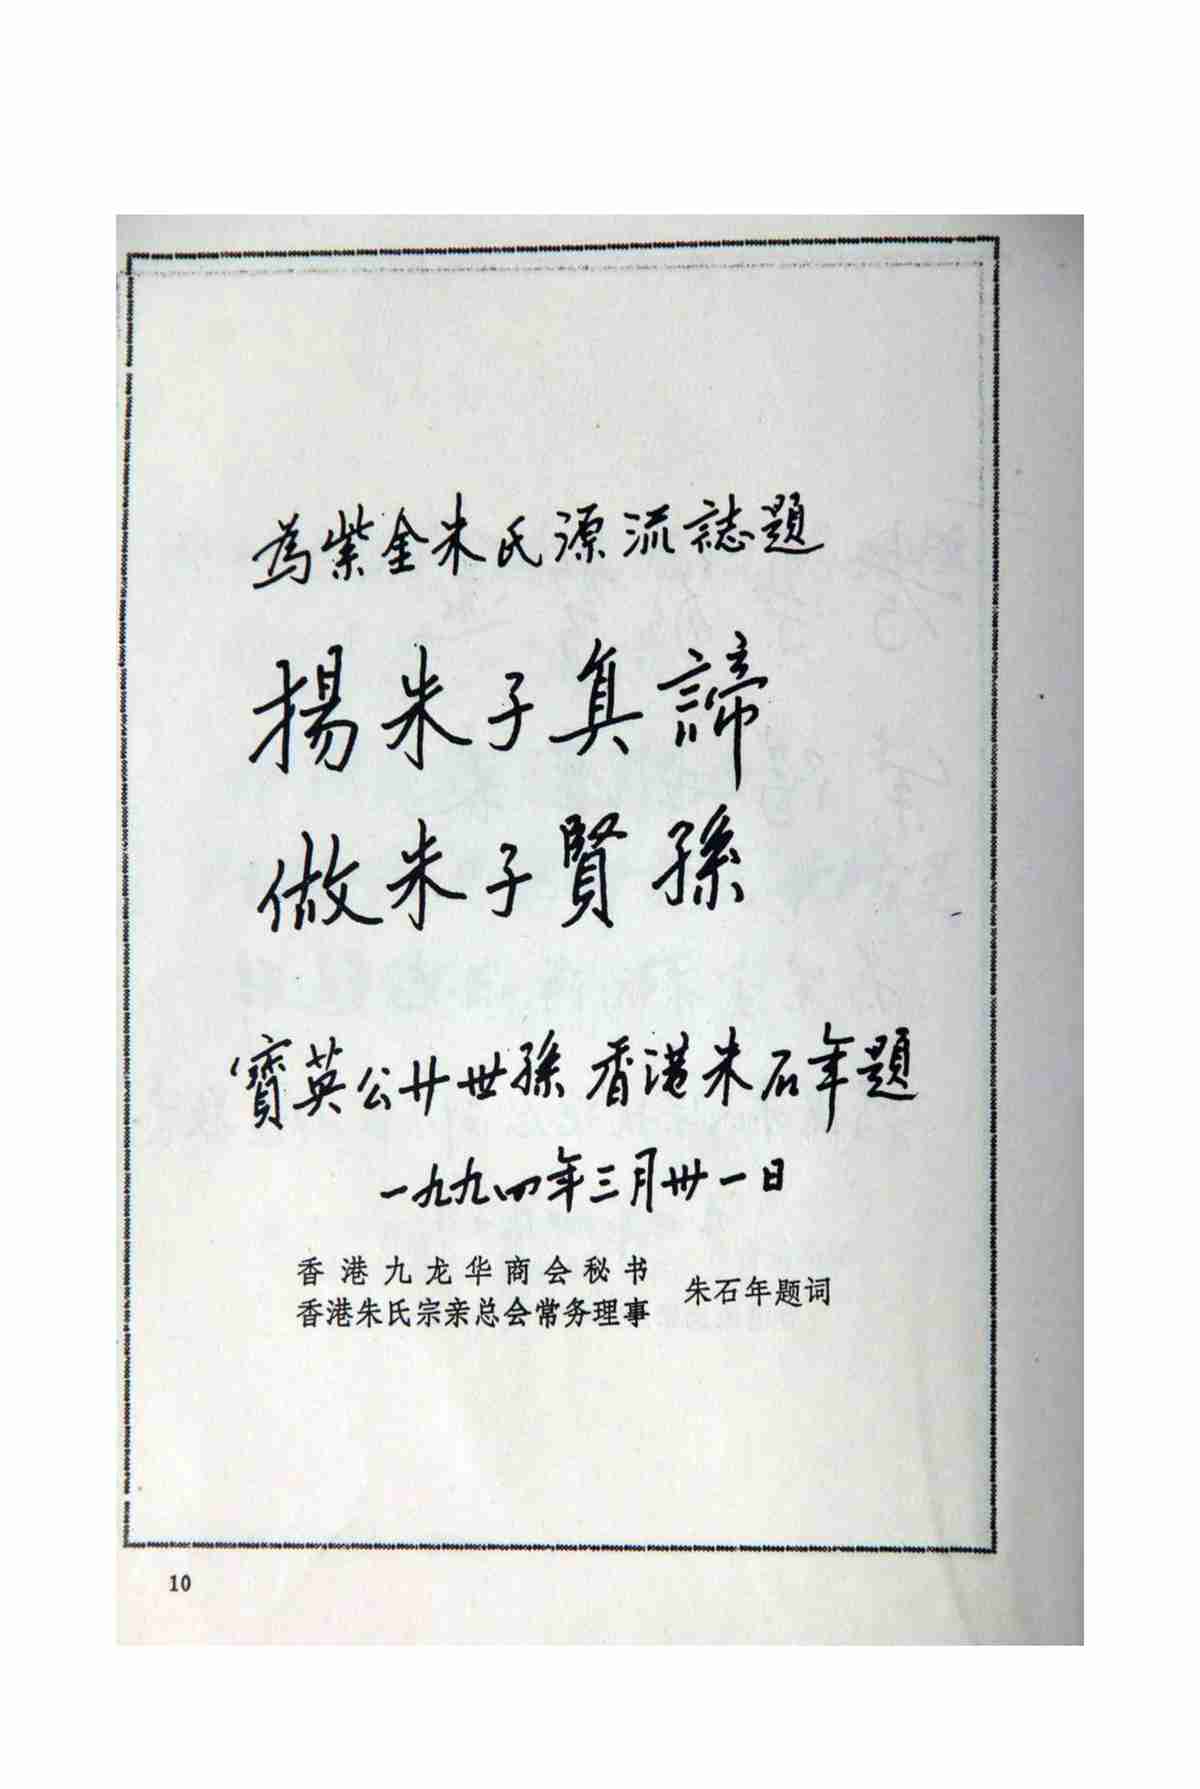 為紫金朱氏源流誌題
揚朱子真諦
做朱子賢孫
寶英公廿世孫 香港朱石年題
一九九四年三月卅一日
香港九龙华商会秘书
香港朱氏宗亲总会常务理事
朱石年题词
10